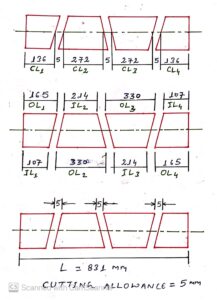 136 5 272 5 272 5 136
CL1 CL2 CL3 CL4
165 214 330 107
OL1 IL2 OL3 IL4
107 330 214 165
IL1 OL2 IL3 OL4
5 5 5
L = 831 mm
CUTTING ALLOWANCE = 5 mm
CS Scanned with CamScanner